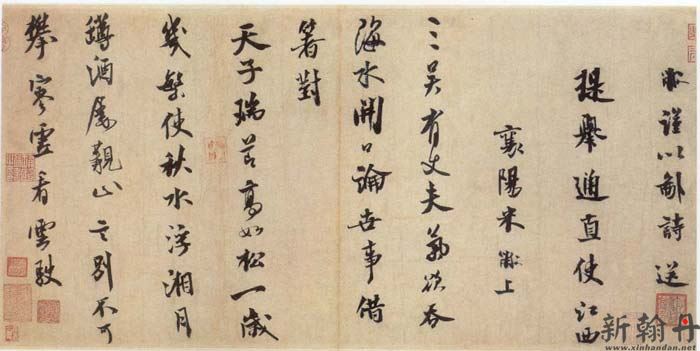 黻謹以鄙詩送
提舉通直使江西
襄陽米黻上
三吴有丈夫氣欲吞
海水開口論世事借
箸對
天子瑞節高如松一歲
幾繁使秋水浮湘月
罇酒屢覯止言別不可
攀看雲駛
新翰丹
www.xinhandan.net